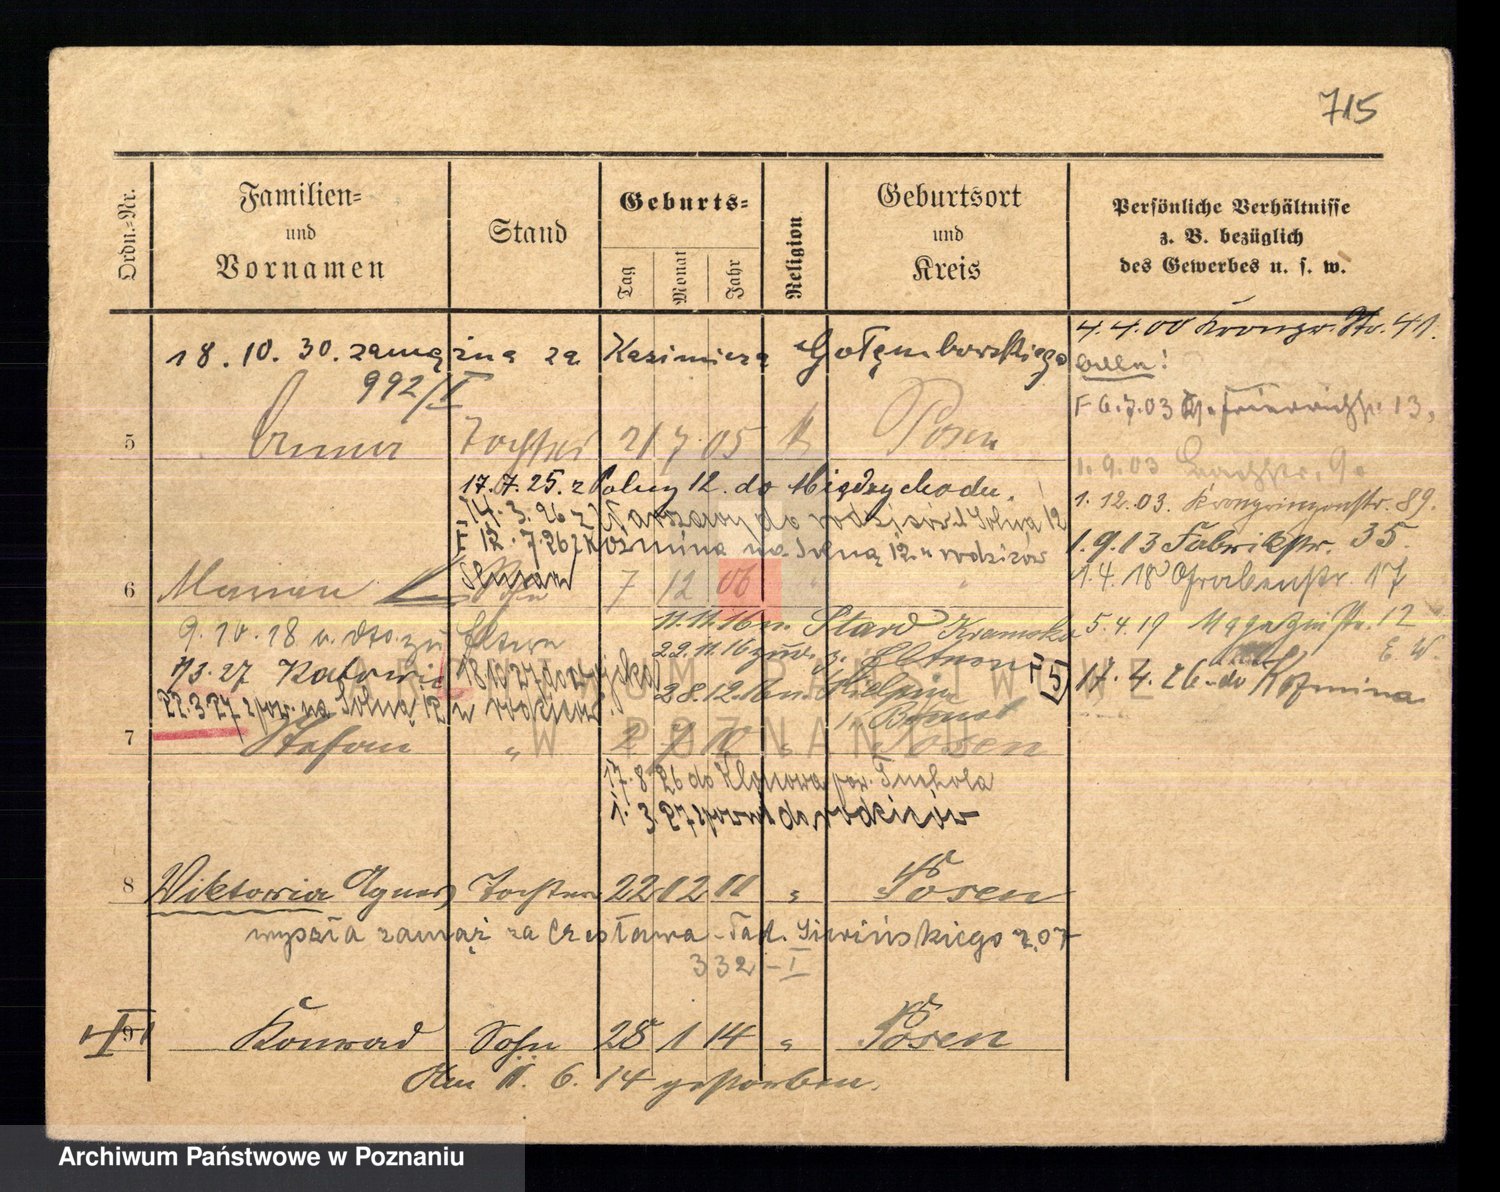 715
Ordn.-Nr.
Familien-
und
Vornamen
Stand
Geburts-
Tag
Monat
Jahr
Religion
Geburtsort
und
Kreis
Persönliche Verhältnisse
z. B. bezüglich
des Gewerbes u. s. w.
4.4.00 Kronpr. Str. 41.
18.10.30. zamężna za Kazimierza Gołembowskiego
992/I
F 6.7.03 13,
5 Anna Tochter 21 7 05 k Posen
1.9.03 9.
17.7.25. z Polnej 12. do Międzychodu.
1.12.03. Kronprinzenstr. 89.
14.3.26 z Warszawy do rodziców Solna 12
1.9.13 Fabrikstr. 35.
F 12.7.26 z Koźmina na Solną 12 u rodziców
1.4.18 Grabenstr. 17
6 Marian Sohn 7 12 06 "
9.10.18 v. dto. zu Eltern
11.11.16 n. Stard Kramske
5.4.19 Magazinstr. 12
22.11.16 zurü. z. Eltern
E W.
F 5
17.4.26 do Koźmina
1.3.27 Katowic
18.10.27 do wojska
28.12.16 n.
22.3.27 z pow. na Solną 12 u rodziców
7 Stefan " 2 7 10 " Posen
17.8.26 do Klonowa pow. Tuchola
1.3.27 z powrot do rodziców
8 Wiktoria Agnes Tochter 22 12 11 " Posen
wyszła zamąż za Czesława-Tad. Siwińskiego r. 07
332-I
9 Konrad Sohn 28 1 14 " Posen
Am 11.6.14 gestorben.
ARCHIWUM PAŃSTWOWE
W POZNANIU
Archiwum Państwowe w Poznaniu